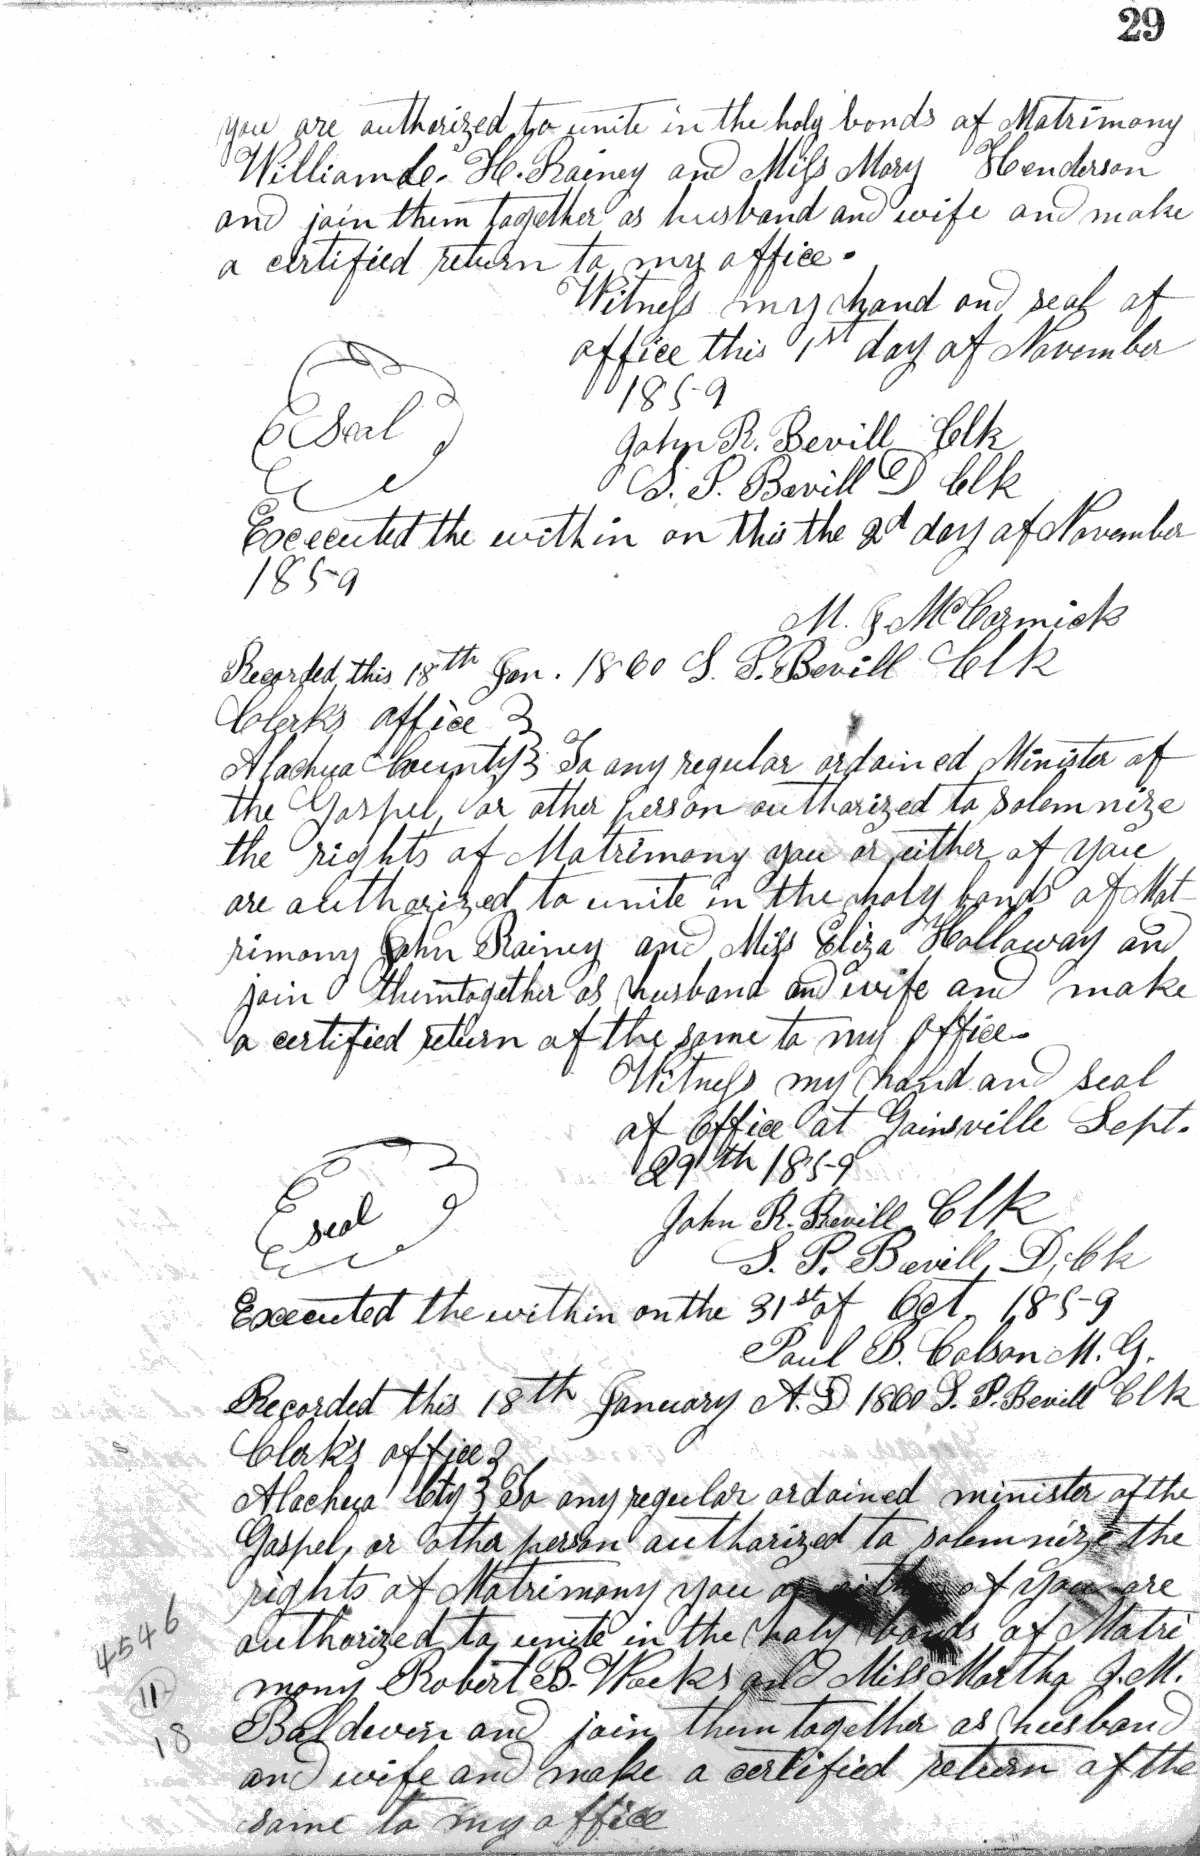 29
you are authorized to unite in the holy bonds of Matrimony
William de. H. Rainey and Miss Mary Henderson
and join them together as husband and wife and make
a certified return to my office.
Witness my hand and seal of
office this 1st day of November
1859
Seal
John R. Bevill Clk
S. P. Bevill D Clk
Excecuted the within on this the 2d day of November
1859
M. J. McCormick
Recorded this 18th Jan. 1860 S. P. Bevill Clk
Clerk's office }
Alachua County } To any regular ordained Minister of
the Gospel, or other person authorized to solemnize
the rights of Matrimony you or either of you
are authorized to unite in the holy bonds of Mat-
rimony John Rainey and Miss Eliza Hollaway and
join them together as husband and wife and make
a certified return of the same to my office.
Witness my hand and seal
of office at Gainsville Sept.
29th 1859
seal
John R. Bevill Clk
S. P. Bevill, D, Ck
Executed the within on the 31st of Oct. 1859
Paul B. Colson M. G.
Recorded this 18th January A. D 1860 S. P. Bevill Clk
Clerk's office }
Alachua Cty } To any regular ordained minister of the
Gospel, or other person authorized to solemnize the
rights of Matrimony you or either of you are
authorized to unite in the holy bonds of Matri
mony Robert B. Weeks and Miss Martha J. M.
Baldwin and join them together as husband
and wife and make a certified return of the
same to my office
4546
11
18